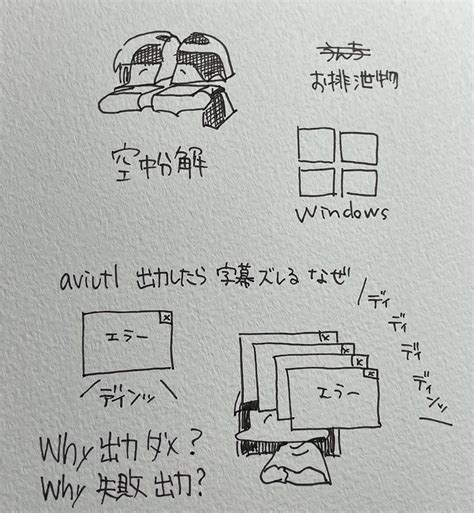 うんち
お排泄物
空中分解
Windows
aviutl 出力したら字幕ズレる なぜ
x
エラー
ディンッ
x
x
x
x
エラー
ディ
ディ
ディ
ディ
ンッ
Why 出力ダメ？
Why 失敗出力？